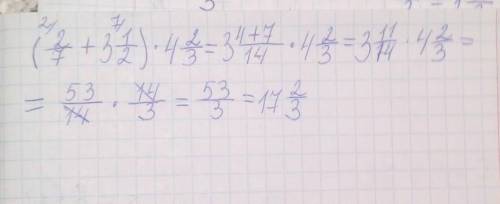 (2/7 + 3 1/2) · 4 2/3 = 3 (4+7)/14 · 4 2/3 = 3 11/14 · 4 2/3 =
= 53/14 · 14/3 = 53/3 = 17 2/3